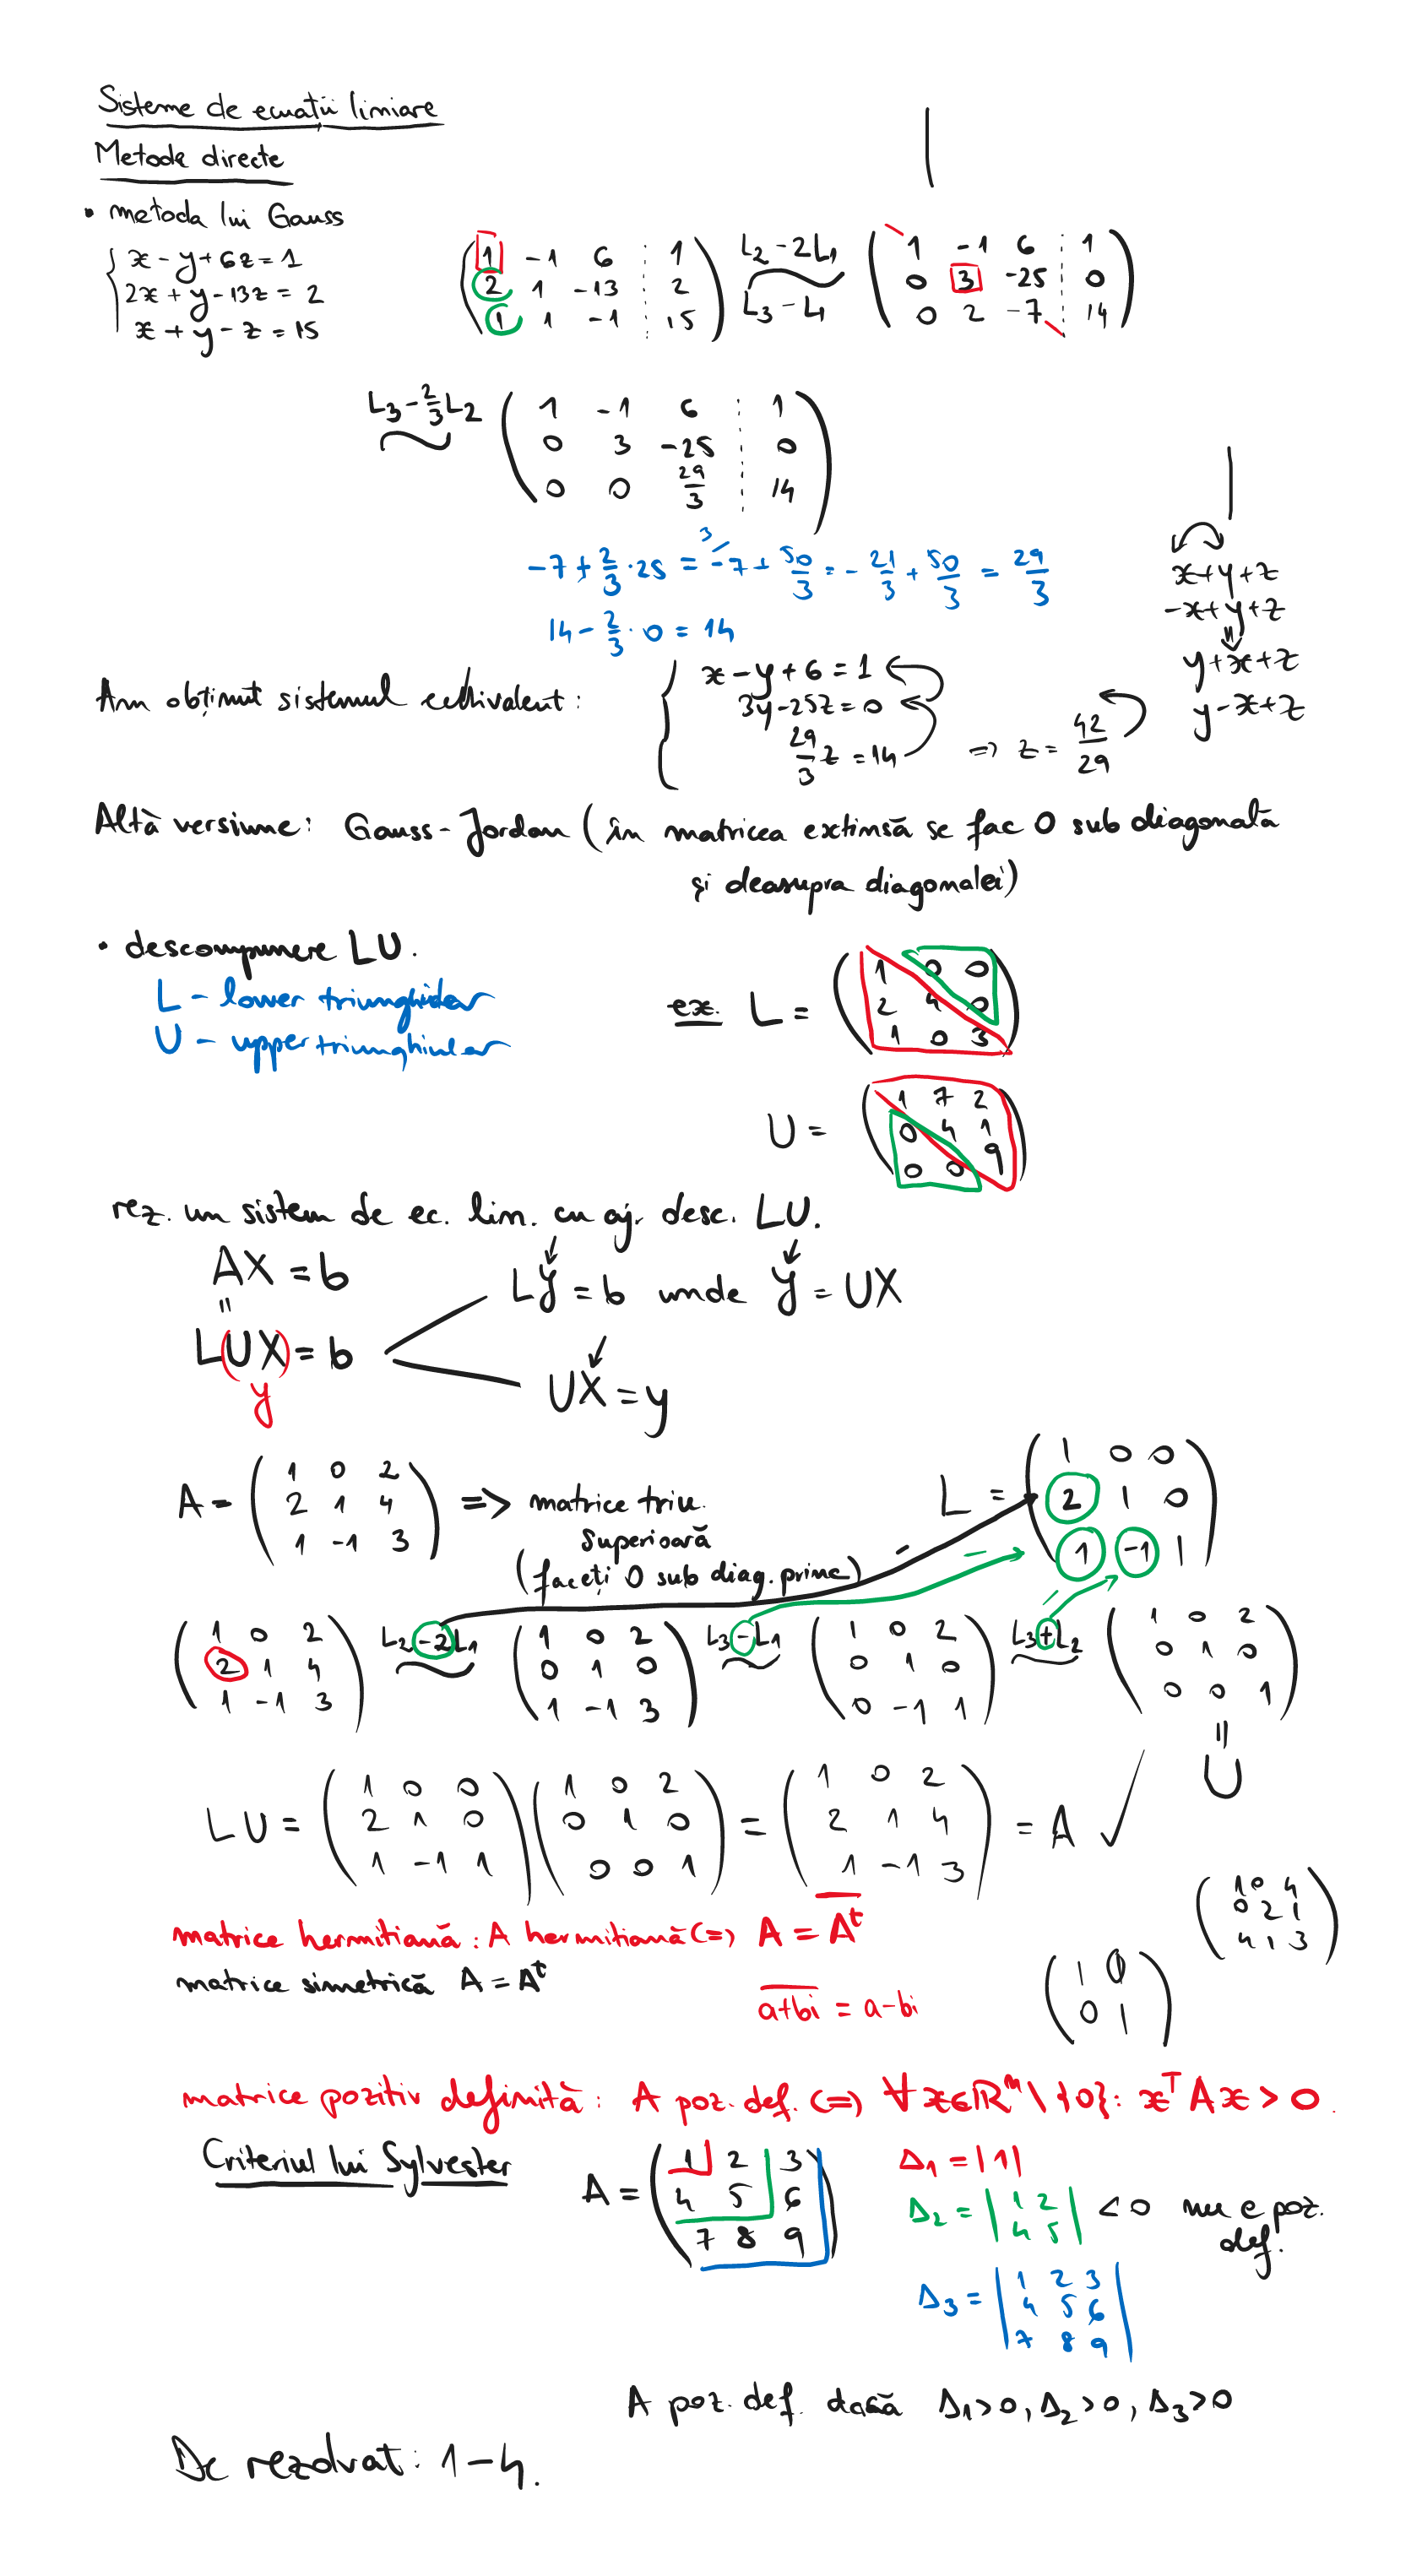 Sisteme de ecuații liniare
Metode directe
• metoda lui Gauss
x - y + 6z = 1
2x + y - 13z = 2
x + y - z = 15
1 -1 6 1
2 1 -13 2
1 1 -1 15
L2 - 2L1
L3 - L1
1 -1 6 1
0 3 -25 0
0 2 -7 14
L3 - 2/3 L2
1 -1 6 1
0 3 -25 0
0 0 29/3 14
-7 + 2/3 · 25 = 3/ -7 + 50/3 = - 21/3 + 50/3 = 29/3
14 - 2/3 · 0 = 14
x+y+z
-x+y+z
⇓
y+x+z
y-x+z
Am obținut sistemul echivalent:
x - y + 6 = 1
3y - 25z = 0
29/3 z = 14 => z = 42/29
Altă versiune: Gauss-Jordan (în matricea extinsă se fac 0 sub diagonală
și deasupra diagonalei)
• descompunere LU.
L - lower triunghiular
U - upper triunghiular
ex. L =
1 0 0
2 4 0
1 0 3
U =
1 7 2
0 4 1
0 0 9
rez. un sistem de ec. lin. cu aj. desc. LU.
AX = b
=
LUX = b
y
Ly = b unde y = UX
UX = y
A =
1 0 2
2 1 4
1 -1 3
=> matrice triu.
superioară
(faceți 0 sub diag. princ)
L =
1 0 0
2 1 0
1 -1 1
- - -
1 0 2
2 1 4
1 -1 3
L2 - 2L1
1 0 2
0 1 0
1 -1 3
L3 - L1
1 0 2
0 1 0
0 -1 1
L3 + L2
1 0 2
0 1 0
0 0 1
=
U
LU =
1 0 0
2 1 0
1 -1 1
1 0 2
0 1 0
0 0 1
=
1 0 2
2 1 4
1 -1 3
= A ✓
matrice hermitiană: A hermitiană (=) A = A̅ᵗ
matrice simetrică A = Aᵗ
a+bi = a-bi
1 0
0 1
1 0 4
0 2 1
4 1 3
matrice pozitiv definită: A poz. def. (=) ∀x∈ℝⁿ \ {0}: xᵀAx > 0.
Criteriul lui Sylvester
A =
1 2 3
4 5 6
7 8 9
Δ1 = |1|
Δ2 = |1 2
4 5| < 0 nu e poz.
def.
Δ3 =
1 2 3
4 5 6
7 8 9
A poz. def. dacă Δ1>0, Δ2>0, Δ3>0
De rezolvat: 1-4.